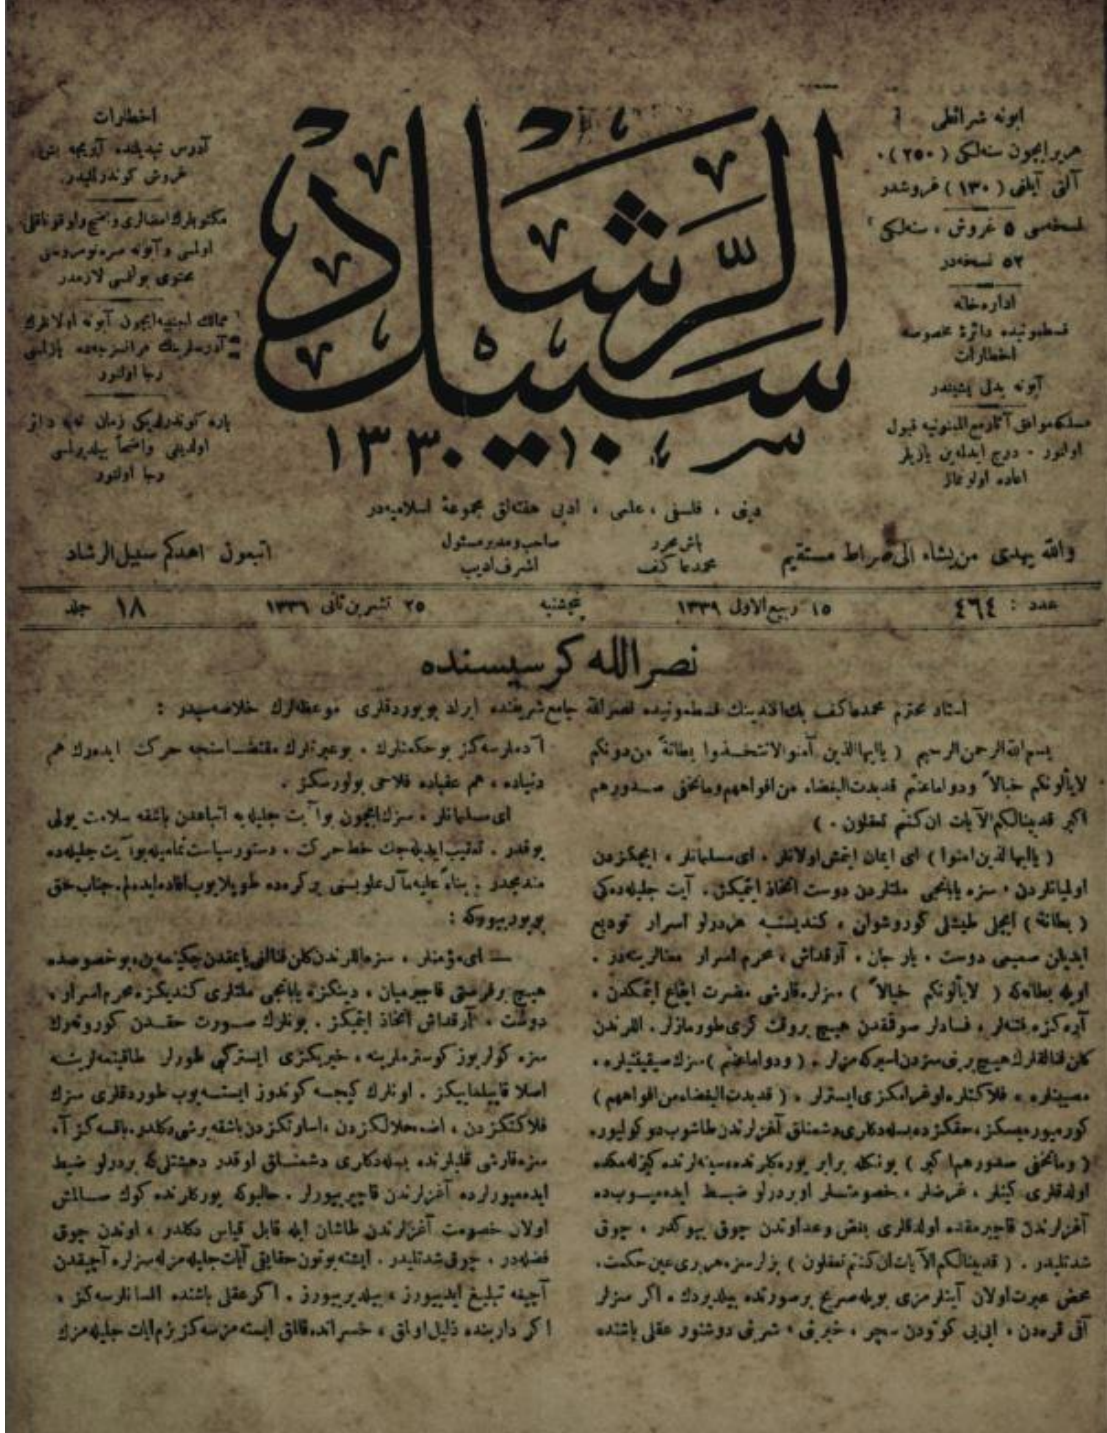 ابونه شرائطی
هر یر ایچون سنه‌لکی (٢٥٠)،
آلتی آیلغی (١٣٠) غروشدر
نسخه‌سی ٥ غروش، سنه‌لکی
٥٢ نسخه‌در
اداره‌خانه
قسطمونیده دائرهٔ مخصوصه
اخطارات
آبونه بدلی پشیندر
مسلکه موافق آثار مع الممنونیه قبول
اولنور. درج ایدلمه‌ین یازیلر
اعاده اولونماز
سبیل الرشاد
١٣٣٠
اخطارات
آدرس تبدیلنده آیریجه بش
غروش کوندرلمیدر
مکتوبلرك امضالری واضح و اوقوناقلی
اولمسی و آبونه صره نومروسنی
محتوی بولنمسی لازمدر
ممالك اجنبیه ایچون آبونه اولانلرك
آدرسلرینك فرانسزجه‌ده یازلمسی
رجا اولنور
پاره کوندرلدیکی زمان نه‌یه دائر
اولدیغی واضحاً بیلدیرلمسی
رجا اولنور
دینی، فلسفی، علمی، ادبی هفته‌لق مجموعهٔ اسلامیه‌در
والله یهدی من یشاء الی صراط مستقیم
باش محرر
محمد عاکف
صاحب و مدیر مسئول
اشرف ادیب
اتبعون اهدکم سبیل الرشاد
عدد : ٤٦٤
١٥ ربیع الاول ١٣٣٩
پنجشنبه
٢٥ تشرین ثانی ١٣٣٦
جلد ١٨
نصرالله کرسیسنده
استاد محترم محمد عاکف بك افندینك قسطمونیده نصرالله جامع شریفنده ایراد بویوردقلری موعظه‌لرك خلاصه‌سیدر :
بسم الله الرحمن الرحیم (یاایها الذین آمنوا لاتتخذوا بطانة من دونکم
لایألونکم خبالا ودوا ماعنتم قدبدت البغضاء من افواههم وماتخفی صدورهم
اکبر قدبینالکم الآیات ان کنتم تعقلون.)
(یاایها الذین امنوا) ای ایمان ایتمش اولانلر، ای مسلمانلر، ایچکزدن
اولمیانلردن، سزه یابانجی ملتلردن دوست اتخاذ ایتمیکز. آیت جلیله‌ده‌کی
(بطانة) ایچلی طیشلی کوروشولن، کندیسنه هر درلو اسرار تودیع
ایدیلن صمیمی دوست، یار جان، آرقداش، محرم اسرار معنالرینه‌در.
اویله بطانه‌که (لایألونکم خبالا) سزلره قارشی مضرت ایقاع ایتمکدن،
آیره‌کزه فتنه‌لر، فسادلر صوقمدن هیچ بر وقت کری طورمازلر. اللرندن
کلن فنالقلرك هیچ برینی سزدن اسیرکه‌مزلر. (ودوا ماعنتم) سزك صیقیلمه،
مصیبتلره، فلاکتلره اوغرامکزی ایسترلر. (قدبدت البغضاء من افواههم)
کورمیورمیسکز، حقکزده بسله‌دکلری دشمنلق آغزلرندن طاشوب دوکولیور.
(وماتخفی صدورهم اکبر) بونکله برابر یورکلرنده، سینه‌لرنده کیزله‌مکده
اولدقلری کینلر، غرضلر، خصومتلر او بر درلو ضبط ایده‌میوب ده
آغزلرندن قاچیرمقده اولدقلری بغض و عداوتدن چوق بیوکدر، چوق
شدتلیدر. (قدبینالکم الآیات ان کنتم تعقلون) بزلر سزه هر بری عین حکمت،
محض عبرت اولان آیتلرمزی بویله صریح بر صورتده بیلدیردك. اکر سزلر
آقی قره‌دن، ایی‌یی کوتودن سچر، خیرنی، شرنی دوشنور عقلی باشنده
آدملرسه‌کز بو حکمتلرك، بو عبرتلرك مقتضاسنجه حرکت ایده‌رك هم
دنیاده، هم عقباده فلاحی بولورسکز.
ای مسلمانلر، سزك ایچون بو آیت جلیله‌یه اتباعدن باشقه سلامت یولی
یوقدر. تعقیب ایدیله‌جك خط حرکت، دستور سیاست تمامیله بو آیت جلیله‌ده
مندمجدر. بناءً علیه مآل علویسنی بر کره‌ده طوپلایوب افاده ایده‌لم. جناب حق
بویوریبورکه :
— ای مؤمنلر، سزه اللرندن کلن فنالغی یاپمقدن چکینمه‌ین، بو خصوصده
هیچ بر فرصتی قاچیرمیان، دینکزه یابانجی ملتلری کندیکزه محرم اسرار،
دوست، آرقداش اتخاذ ایتمیکز. بونلرك صورت حقدن کورونه‌رك
سزه کولر یوز کوسترملرینه، خیرکزی ایسترکبی طورلر طاقنمه‌لرینه
اصلا قاپیلمایکز. اونلرك کیجه کوندوز ایسته‌یوب طوردقلری سزك
فلاکتکزدن، اضمحلالکزدن، اسارتکزدن باشقه برشی دکلدر. باقسه‌کز آ،
سزه قارشی قلبلرنده بسله‌دکلری دشمنلق اوقدر دهشتلی که بر درلو ضبط
ایده‌میورلرده آغزلرندن قاچیریورلر. حالبوکه یورکلرنده کوك صالمش
اولان خصومت آغزلرندن طاشان ایله قابل قیاس دکلدر، اوندن چوق
فضله‌در، چوق شدتلیدر. ایشته بوتون حقایقی آیات جلیله‌مزله سزلره آچیقدن
آچیغه تبلیغ ایدیبورز، بیلدیریبورز. اکر عقلی باشنده انسانلرسه‌کز،
اکر دارینده ذلیل اولمق، خسرانده قالمق ایسته‌مزسه‌کز بزم آیات جلیله‌مزك